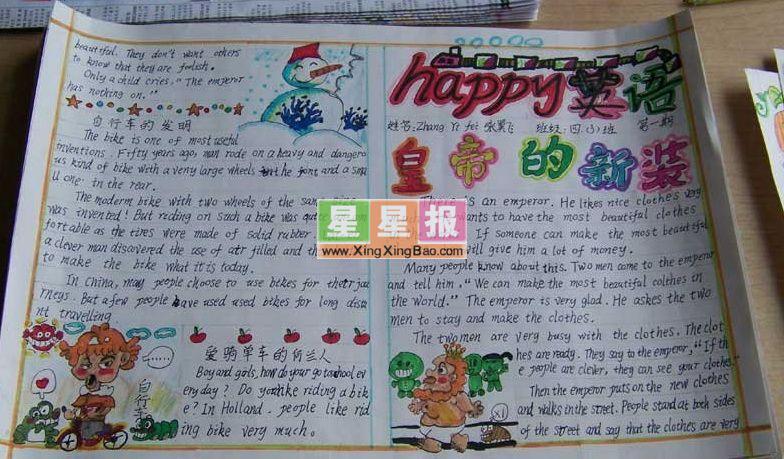 beautiful. They don't want others
to know that they are foolish.
Only a child cries, "The emperor
has nothing on."
自行车的发明
The bike is one of most useful
inventions. Fifty years ago, man rode on a heavy and dangero
us kind of bike with a very large wheels in the font and a sma
ll one in the rear.
The moderm bike with two wheels of the same
was invented! But reding on such a bike was quite
fortable as the tires were made of solid rubber.
a clever man disavered the use of atr filled and th
to make the bike what it is today.
In China, may people choose to use bikes for their jou
rneys. But a few people have used used bikes for long dista
nt travelling
自行车
爱骑单车的荷兰人
Boy and girls, how do your go to school ev
ery day? Do you like riding a bik
e? In Holland, people like rid
ing bike very much.
happy 英语
姓名:Zhang Yi fei 张翼飞 班级:四(5)班 第一期
皇帝的新装
There is an emperor. He likes nice clothes very
wants to have the most beautiful clothes
If someone can make the most beautiful
will give him a lot of money.
Many people know about this. Two men come to the emperor
and tell him, "We can make the most beautiful colthes in
the world." The emperor is very glad. He asks the two
men to stay and make the clothes.
The two men are very busy with the clothes. The clot
hes are ready. They say to the emperor, "If th
e people are clever, they can see your clothes."
Then the emperor puts on the new clothes
and walks in the street. People stand at both sides
of the street and say that the clothes are very
星星报
www.XingXingBao.com